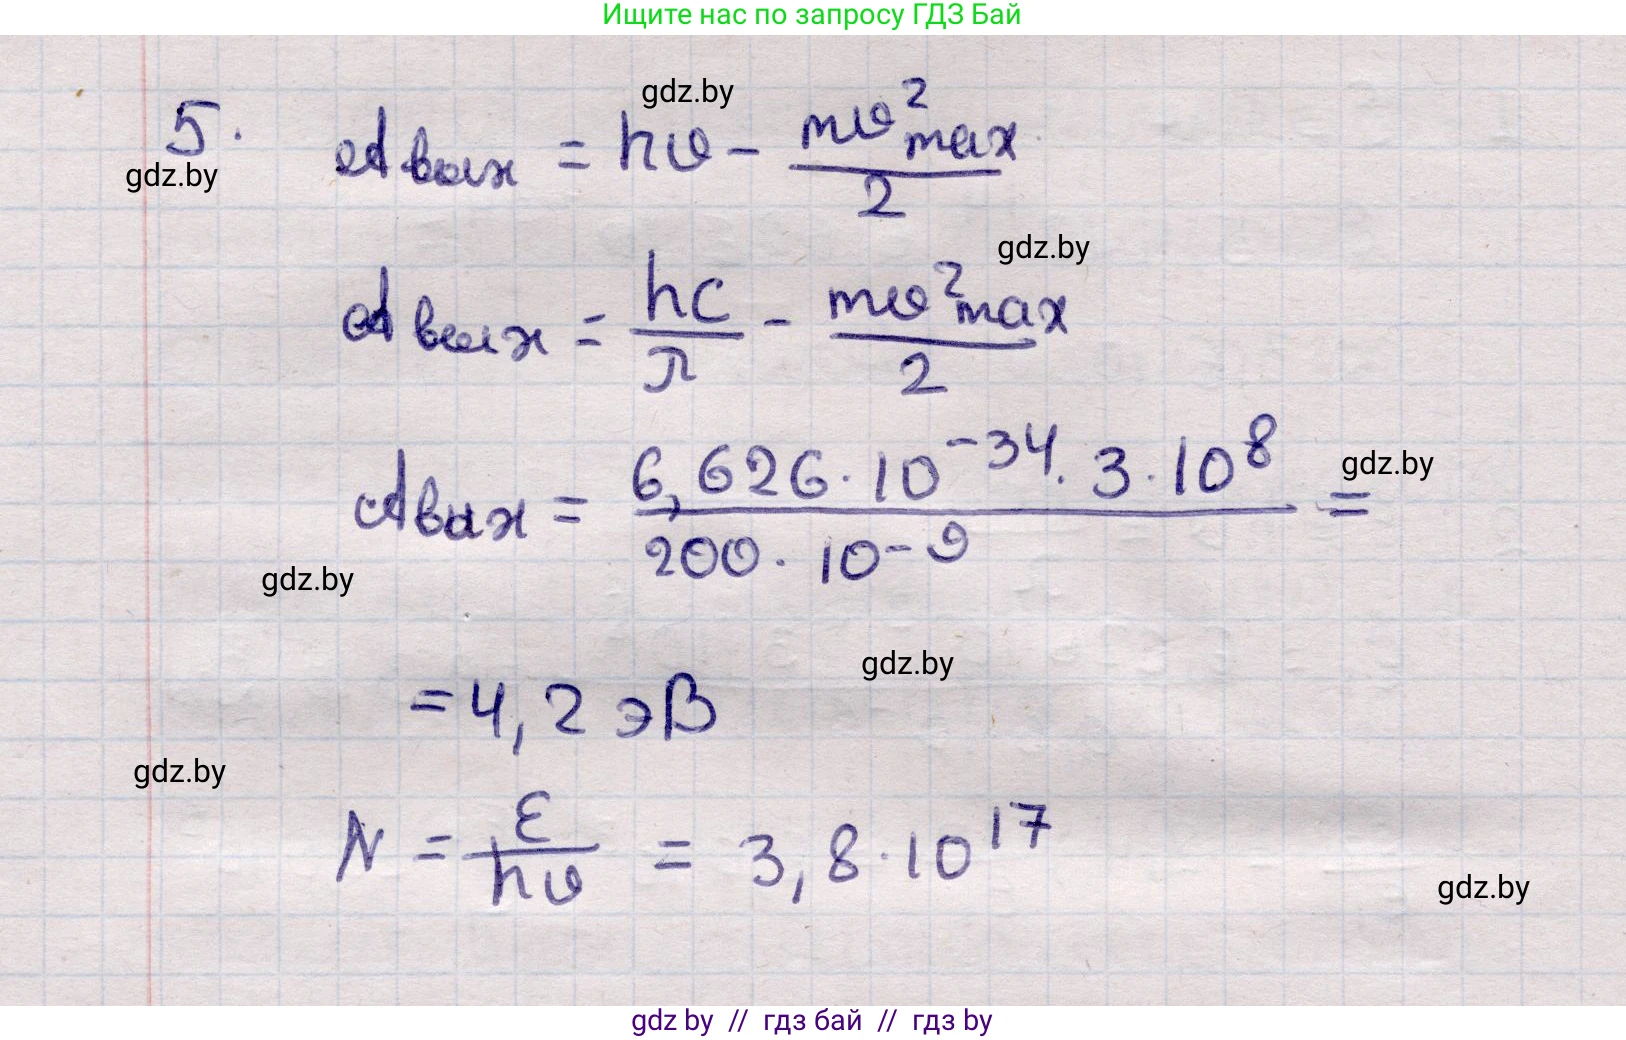 Ищите нас по запросу ГДЗ Бай
gdz.by
5. Aвых = hυ - mυ²max / 2
gdz.by
gdz.by
Aвых = hc / λ - mυ²max / 2
Aвых = 6,626 · 10⁻³⁴ · 3 · 10⁸ / 200 · 10⁻⁹ =
gdz.by
gdz.by
gdz.by
= 4,2 эВ
gdz.by
N = ε / hυ = 3,8 · 10¹⁷
gdz.by
gdz by // гдз бай // гдз by